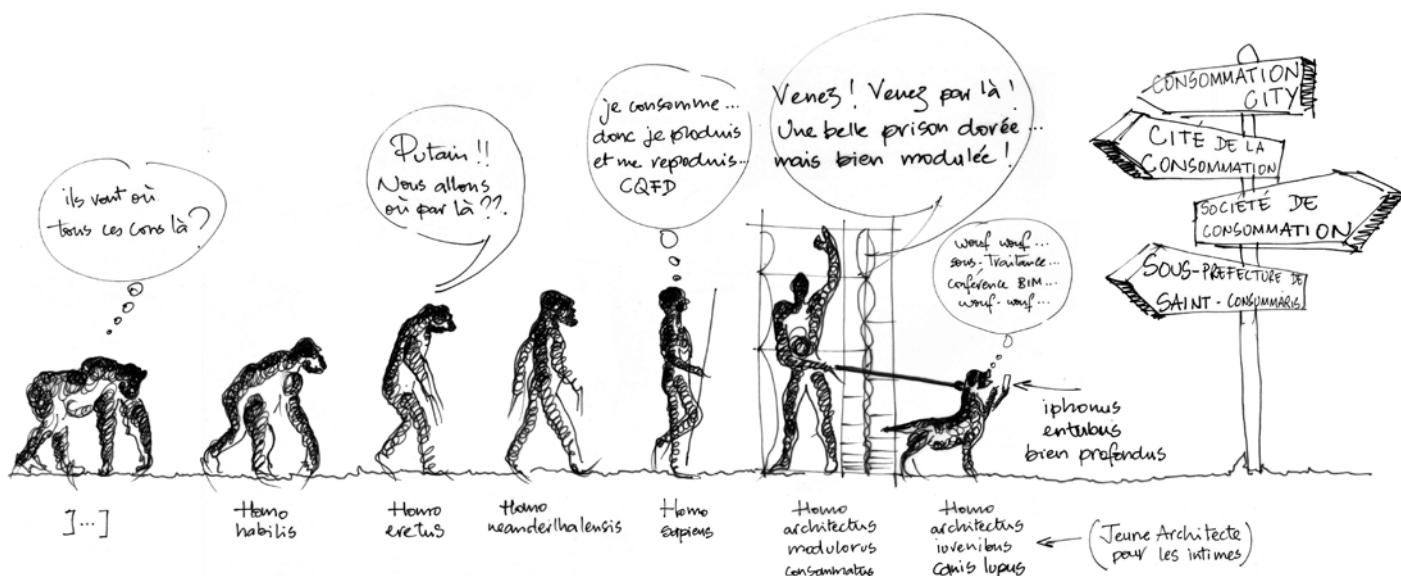 ils vont où
tous ces cons là ?
Putain !!
Nous allons
où par là ??.
je consomme...
donc je produis
et me reproduis...
CQFD
Venez ! Venez par là !
Une belle prison dorée...
mais bien modulée !
wouf wouf...
sous-traitance...
conférence BIM...
wouf-wouf...
CONSOMMATION
CITY
CITÉ DE LA
CONSOMMATION
SOCIÉTÉ DE
CONSOMMATION
SOUS-PREFECTURE DE
SAINT-CONSUMMARIS
iphonus
entubus
bien profondus
]...]
Homo
habilis
Homo
eretus
Homo
neanderlhalensis
Homo
sapiens
Homo
architectus
modulorus
consommatus
Homo
architectus
iuvenibus
canis lupus
(Jeune Architecte
pour les intimes)